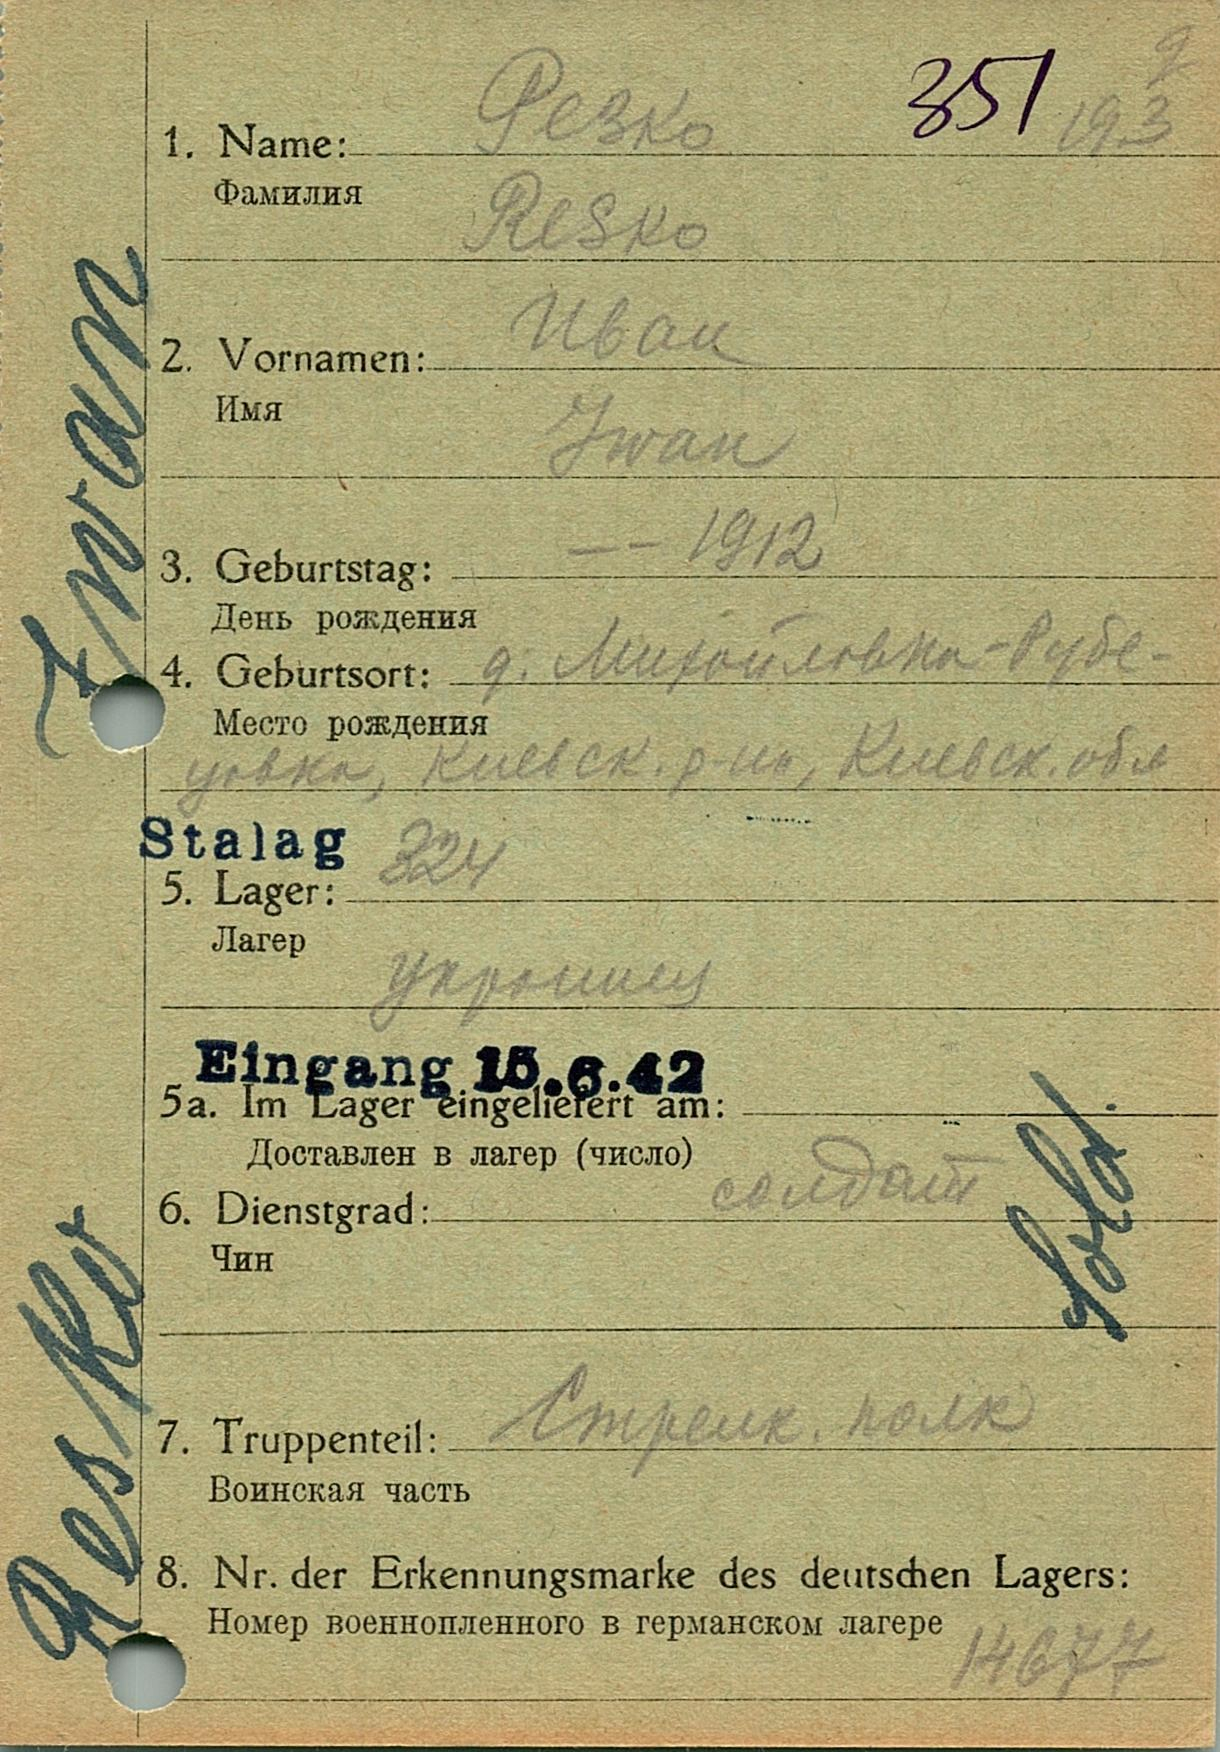 351
193
1. Name: Резко
Фамилия
Resko
2. Vornamen: Иван
Имя
Iwan
3. Geburtstag: —— 1912
День рождения
4. Geburtsort: д. Михайловка-Рубе-
Место рождения
човка, Киевск. р-он, Киевск. обл
Stalag 324
5. Lager:
Лагер
украинец
Eingang 15.6.42
5a. Im Lager eingeliefert am:
Доставлен в лагер (число)
6. Dienstgrad: солдат
Чин
Sold.
7. Truppenteil: Стрелк. полк
Воинская часть
8. Nr. der Erkennungsmarke des deutschen Lagers:
Номер военнопленного в германском лагере
14677
Resko Iwan